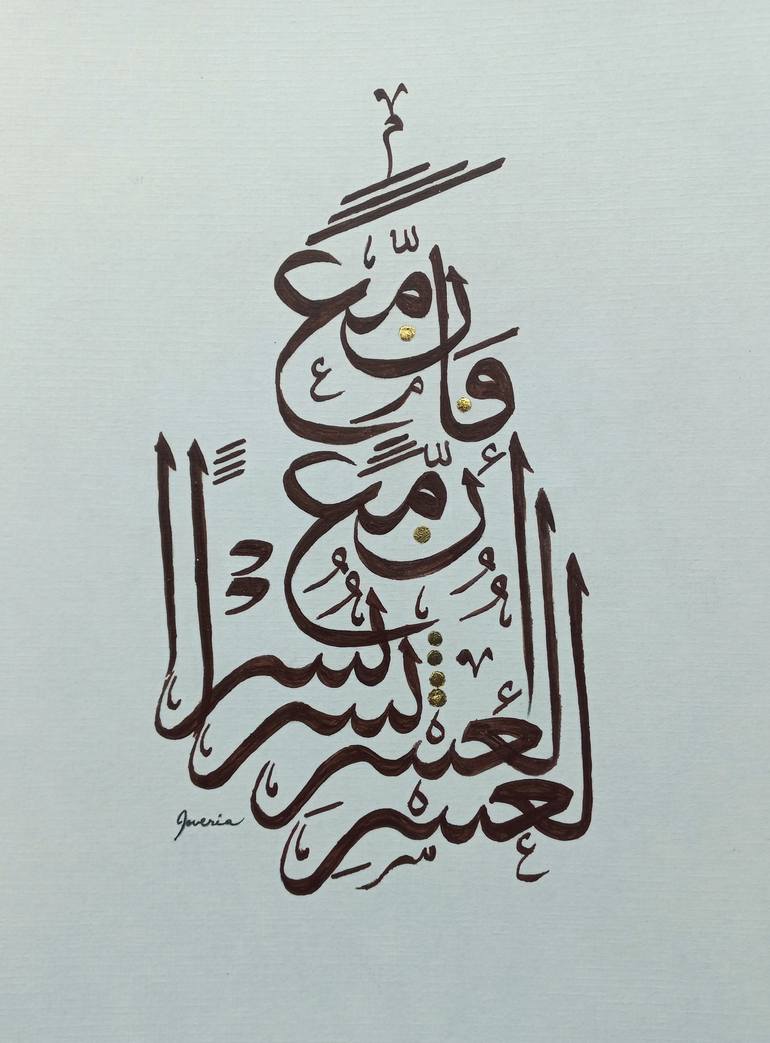 فَإِنَّ مَعَ الْعُسْرِ يُسْرًا
إِنَّ مَعَ الْعُسْرِ يُسْرًا
Javeria